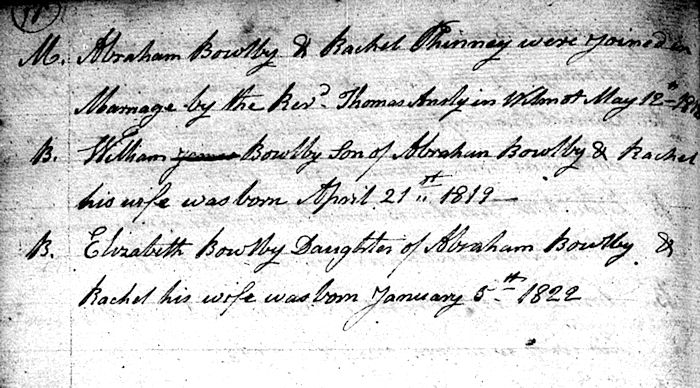 M. Abraham Bowlby & Rachel Phinney were joined in
Marriage by the Revd. Thomas Ansly in Wilmot May 12th
B. William James Bowlby Son of Abraham Bowlby & Rachel
his wife was born April 21st 1819
B. Elizabeth Bowlby Daughter of Abraham Bowlby &
Rachel his wife was born January 5th 1822